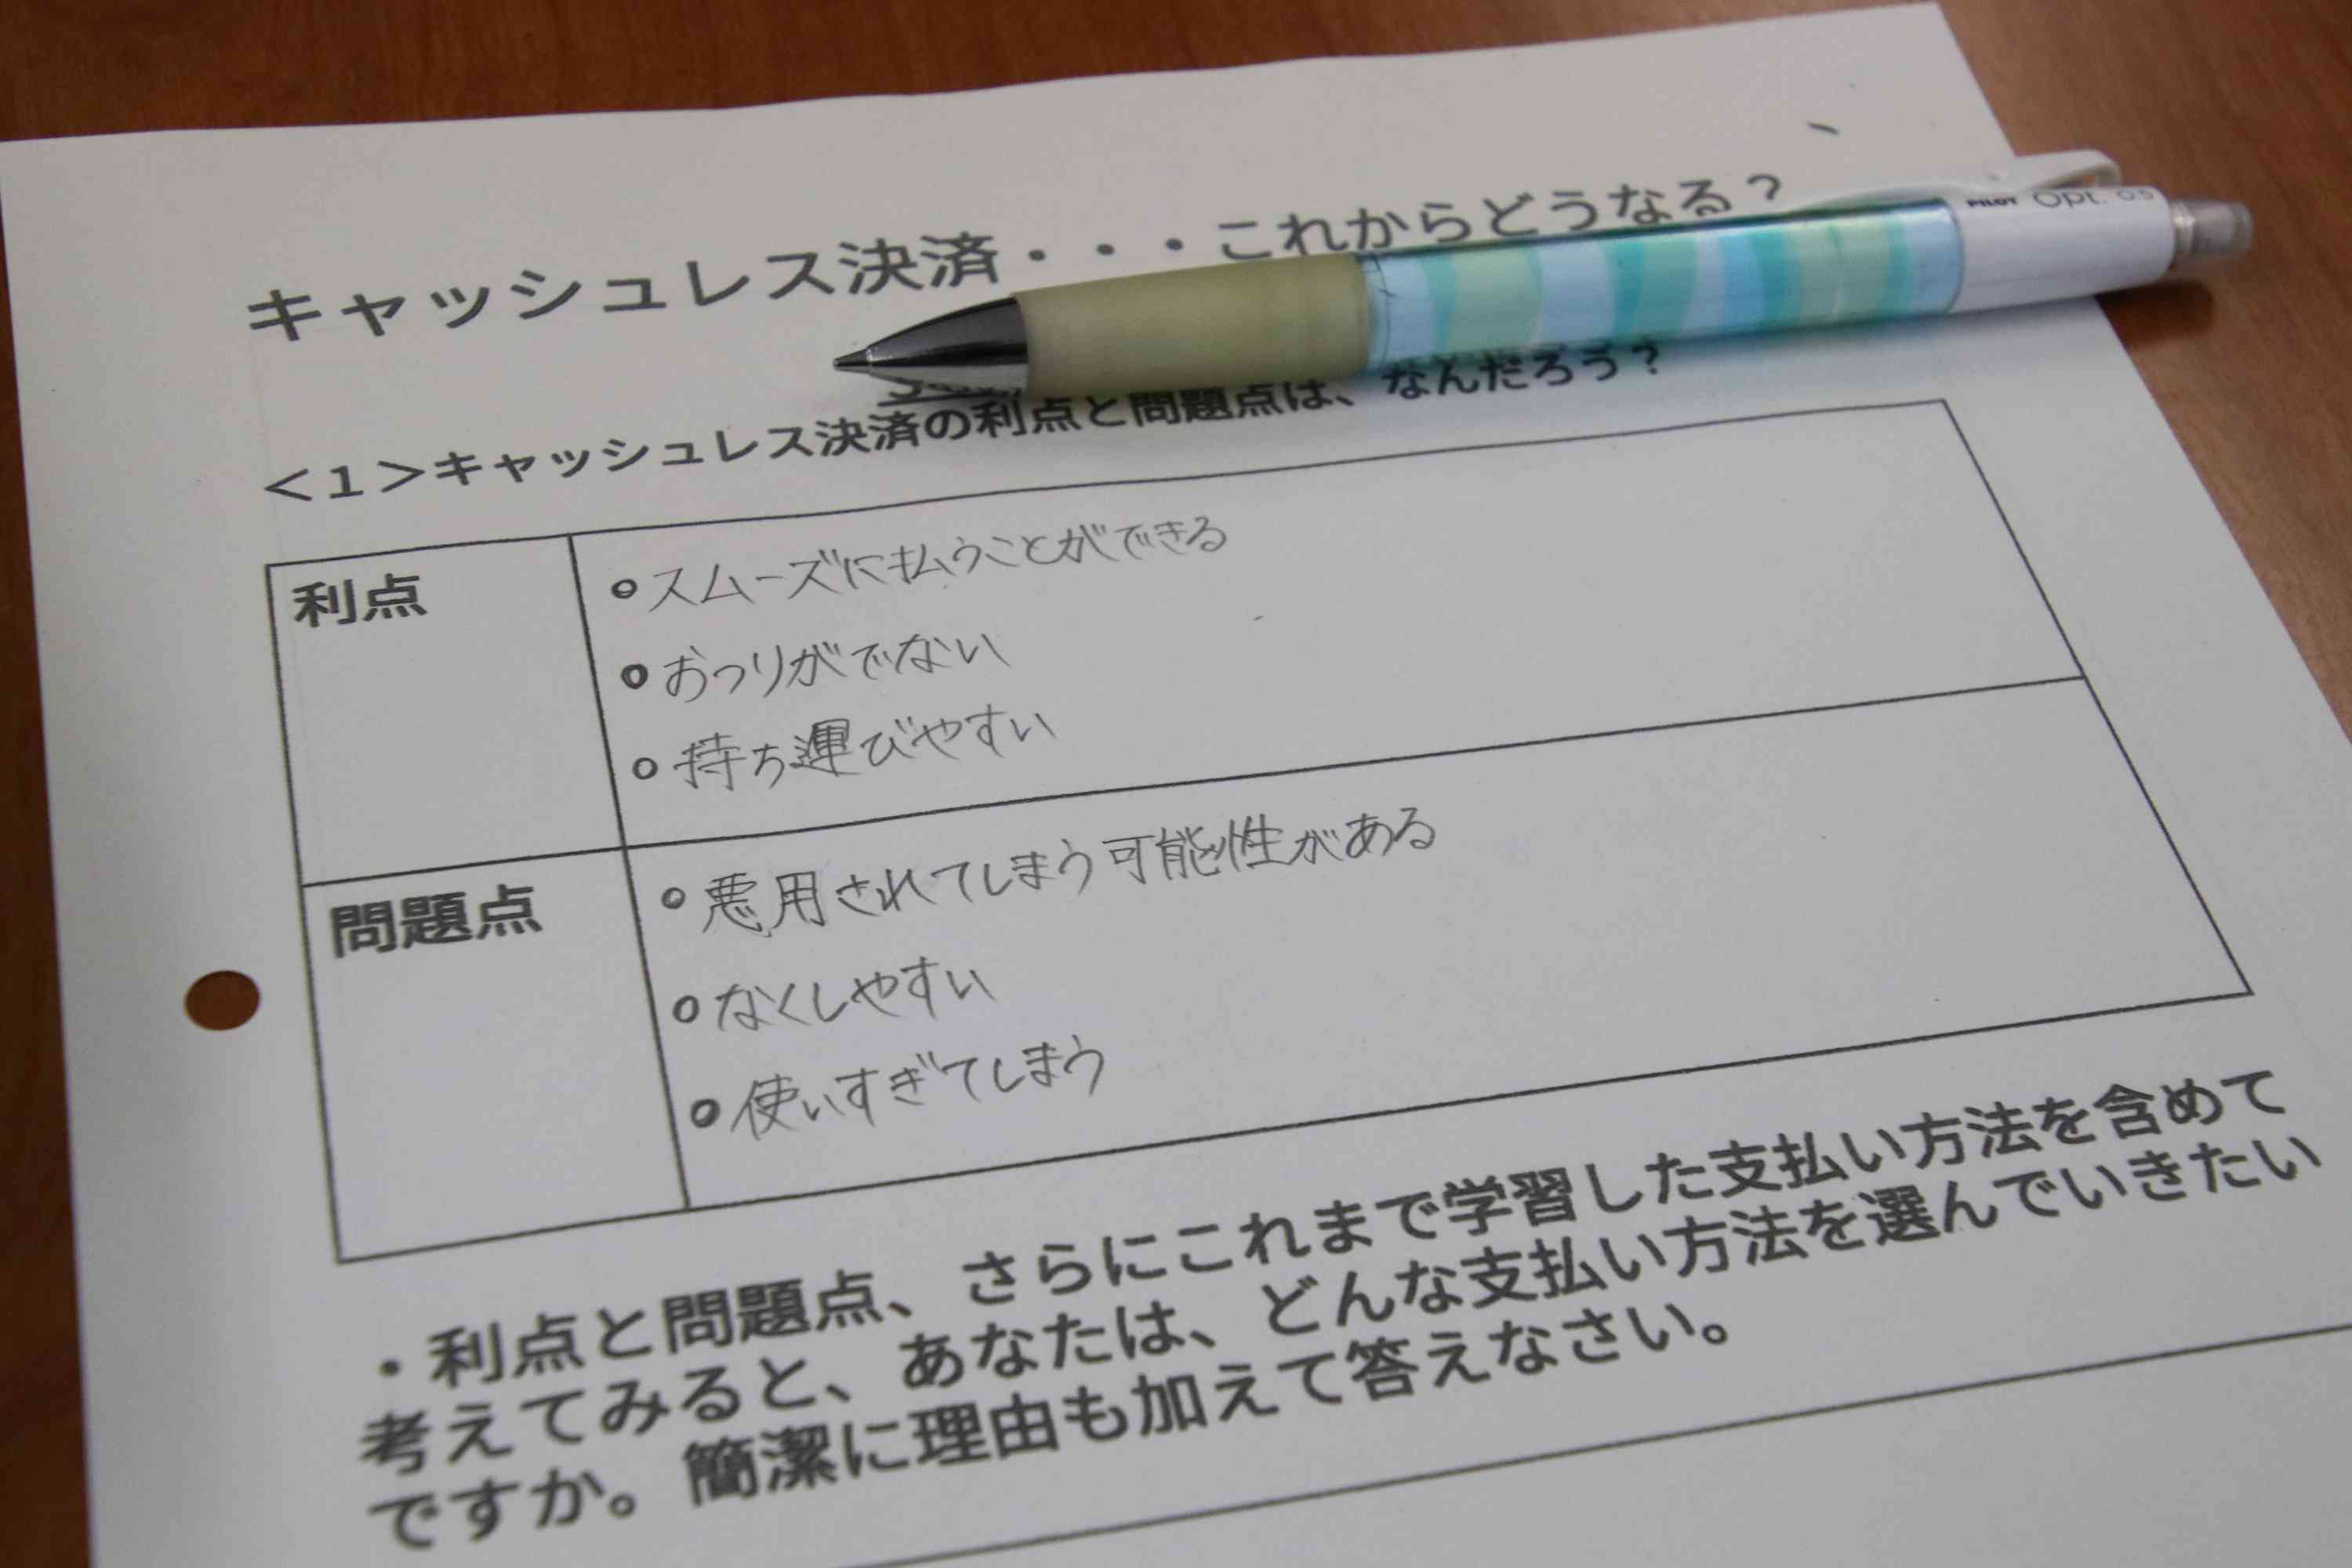 キャッシュレス決済・・・これからどうなる？
PILOT Opt. 0.5
＜１＞キャッシュレス決済の利点と問題点は、なんだろう？
利点
○スムーズに払うことができる
○おつりがでない
○持ち運びやすい
問題点
○悪用されてしまう可能性がある
○なくしやすい
○使いすぎてしまう
・利点と問題点、さらにこれまで学習した支払い方法を含めて
考えてみると、あなたは、どんな支払い方法を選んでいきたい
ですか。簡潔に理由も加えて答えなさい。